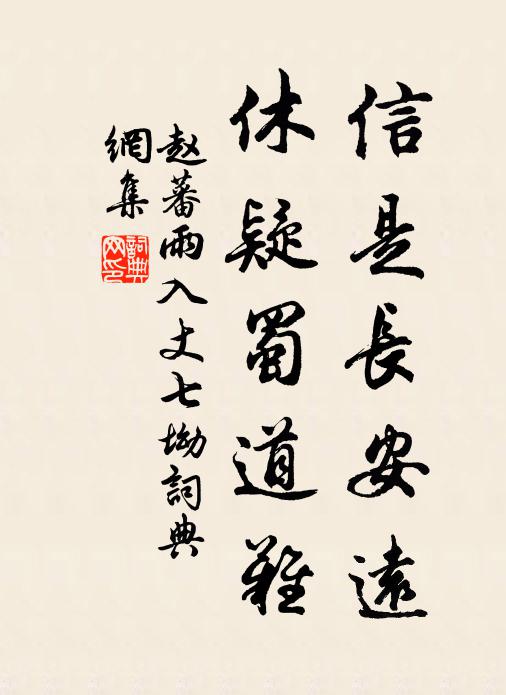 信是長安遠
休疑蜀道難
赵蕃雨入丈七坳詞典
網集
詞典
网印